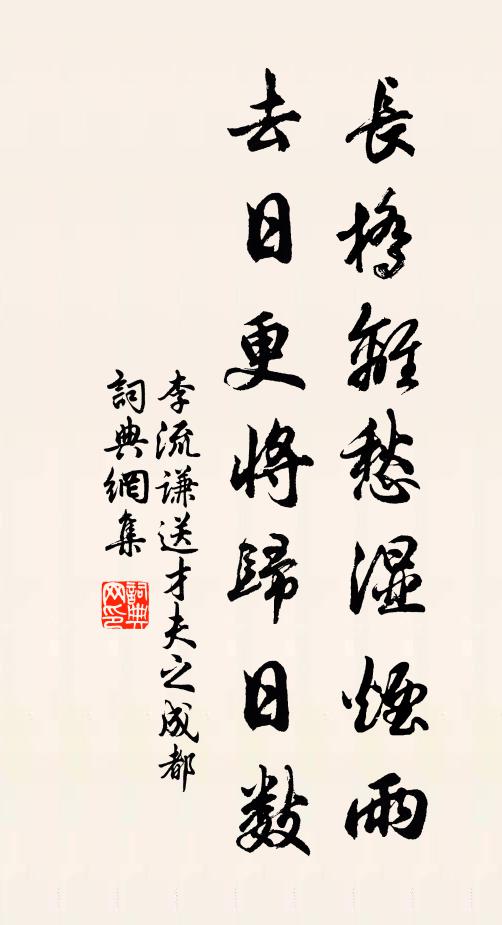 長橋離愁濕煙雨
去日更將歸日數
李流謙送才夫之成都
詞典網集
詞典網印